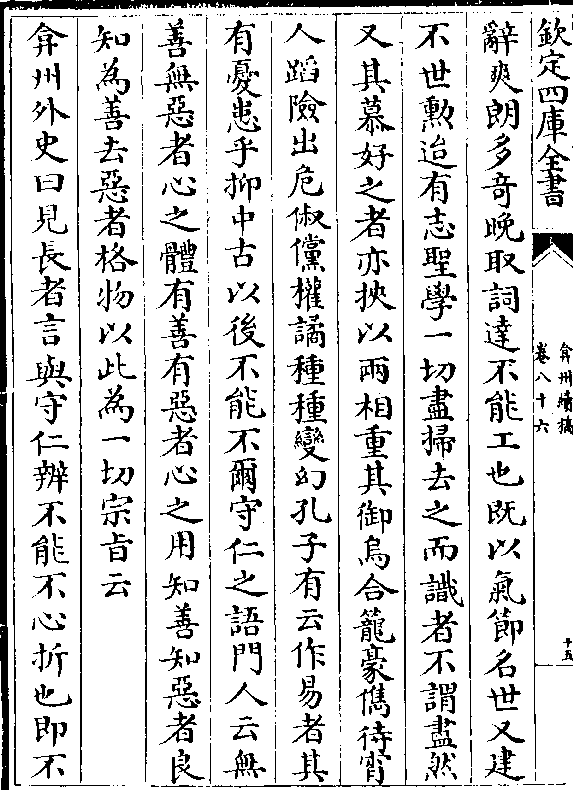 欽定四庫全書
弇州續稿
卷八十六
十五
辭爽朗多奇晚取詞達不能工也既以氣節名世又建
不世勲迨有志聖學一切盡掃去之而識者不謂盡然
又其慕好之者亦挾以兩相重其御烏合籠豪儁待宵
人蹈險出危俶儻權譎種種變幻孔子有云作易者其
有憂患乎抑中古以後不能不爾守仁之語門人云無
善無惡者心之體有善有惡者心之用知善知惡者良
知為善去惡者格物以此為一切宗旨云
弇州外史曰見長者言與守仁辨不能不心折也即不